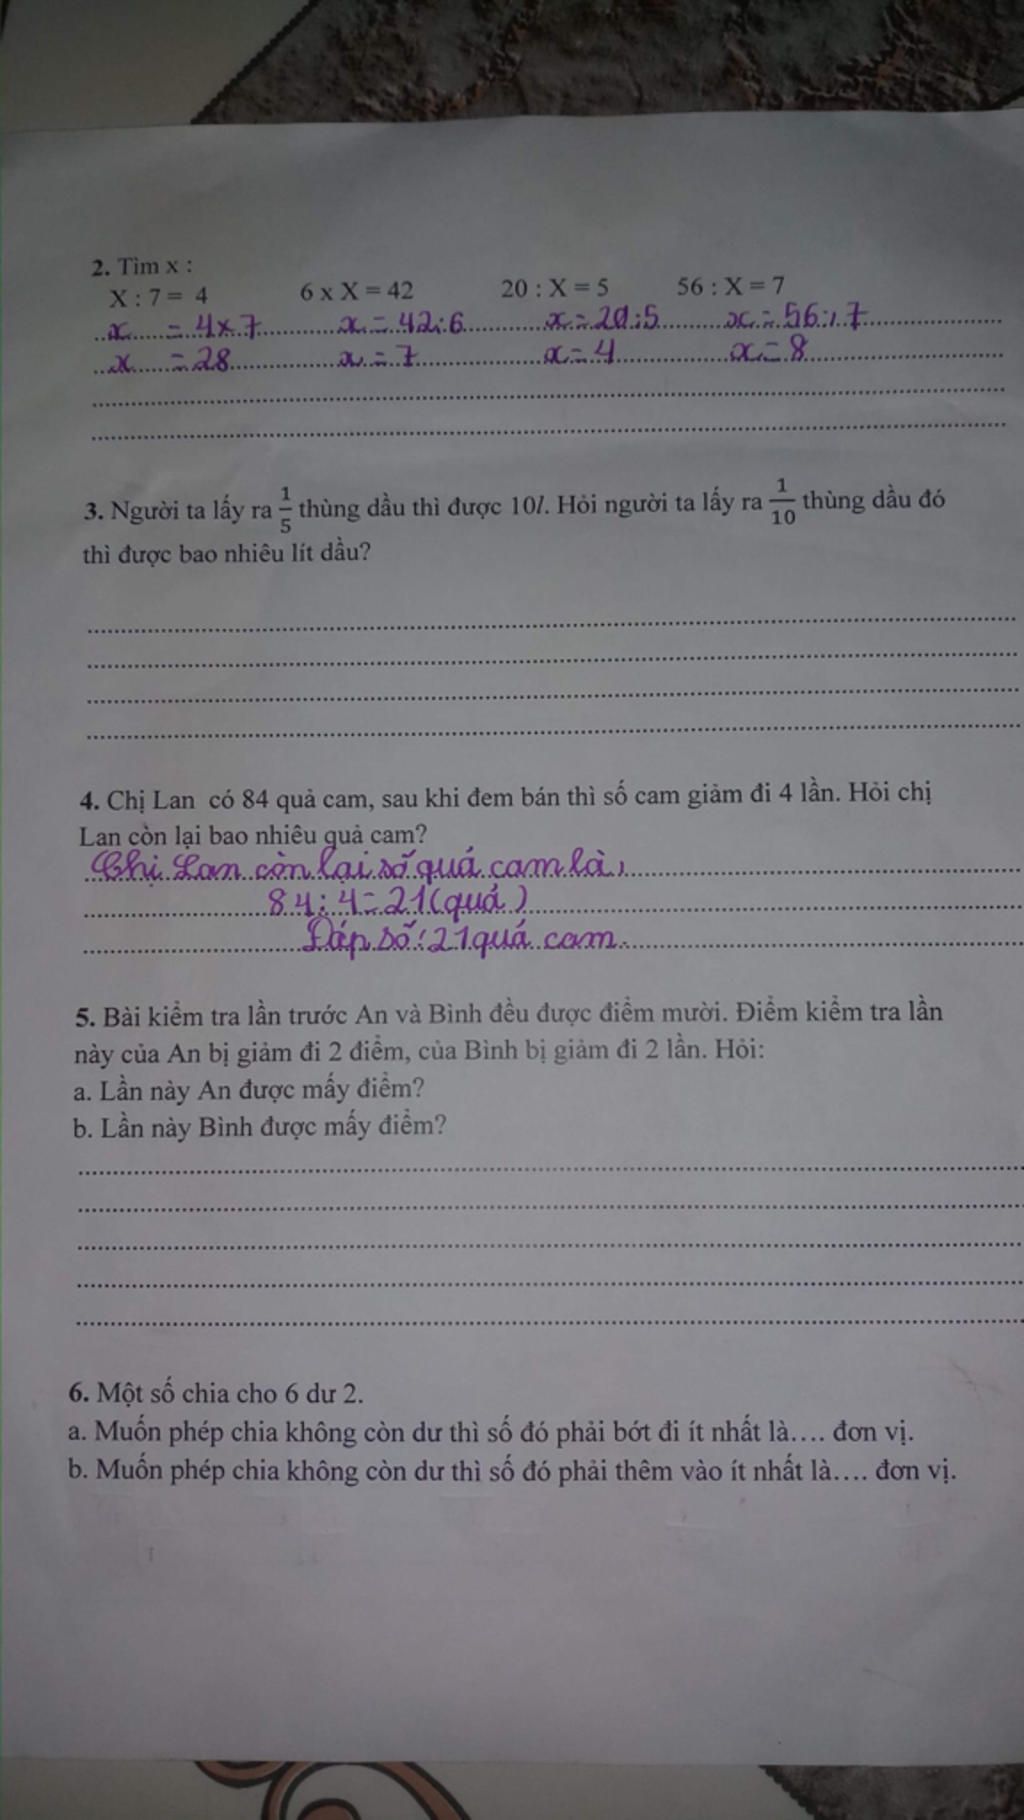 2. Tìm x :
X : 7 = 4 6 x X = 42 20 : X = 5 56 : X = 7
x = 4 x 7 x = 42 : 6 x = 20 : 5 x = 56 : 7
x = 28 x = 7 x = 4 x = 8
3. Người ta lấy ra 1/5 thùng dầu thì được 10l. Hỏi người ta lấy ra 1/10 thùng dầu đó
thì được bao nhiêu lít dầu?
4. Chị Lan có 84 quả cam, sau khi đem bán thì số cam giảm đi 4 lần. Hỏi chị
Lan còn lại bao nhiêu quả cam?
Chị Lan còn lại số quả cam là :
84 : 4 = 21 (quả)
Đáp số : 21 quả cam.
5. Bài kiểm tra lần trước An và Bình đều được điểm mười. Điểm kiểm tra lần
này của An bị giảm đi 2 điểm, của Bình bị giảm đi 2 lần. Hỏi:
a. Lần này An được mấy điểm?
b. Lần này Bình được mấy điểm?
6. Một số chia cho 6 dư 2.
a. Muốn phép chia không còn dư thì số đó phải bớt đi ít nhất là.... đơn vị.
b. Muốn phép chia không còn dư thì số đó phải thêm vào ít nhất là.... đơn vị.